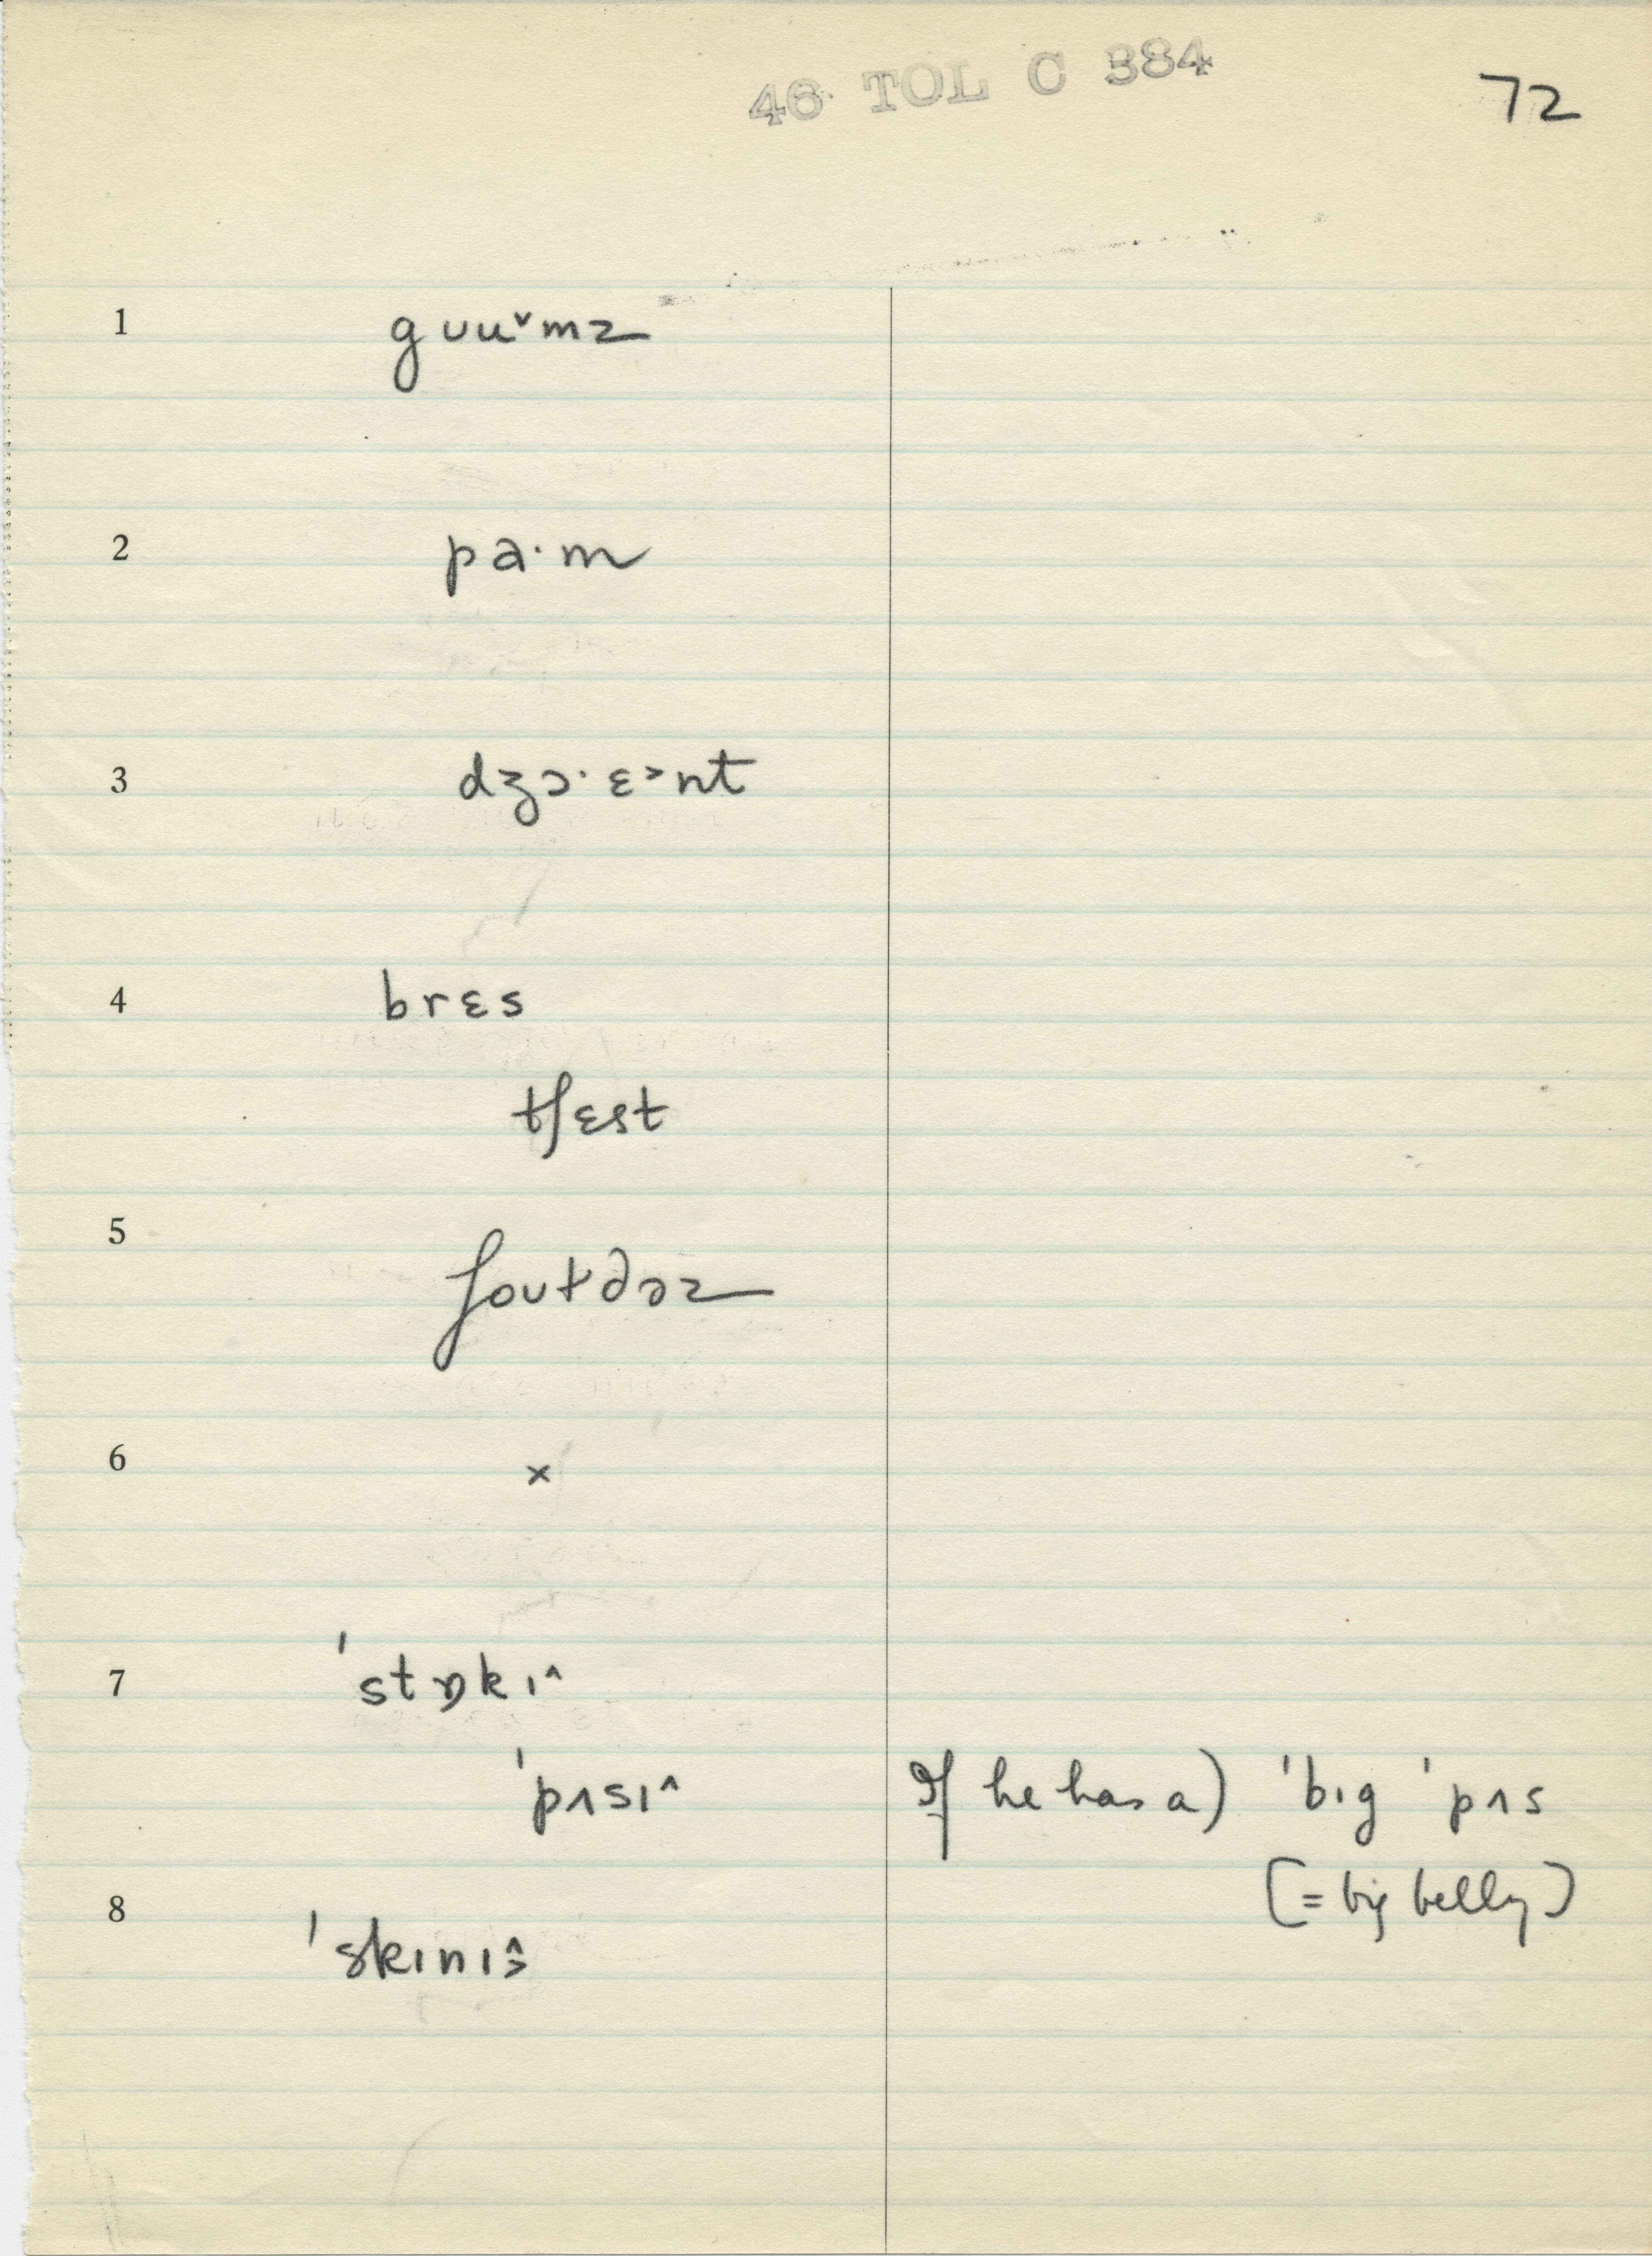 46 TOL C 384
72
1 gʊu˅mz
2 pa·m
3 dʒɔ·ɛ˃nt
4 brɛs
tʃɛst
5 ʃoʊtdəz
6 ×
7 ˈstɒkɪ˄
ˈpʌsɪ˄ If he has a) ˈbɪg ˈpʌs
(= big belly)
8 ˈskɪnɪ˄˃